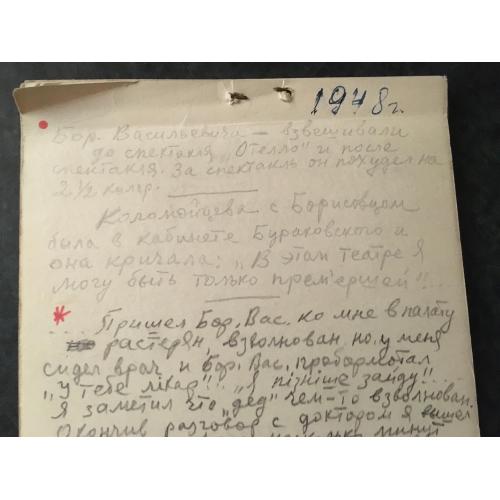 1948 г.
Бор. Васильевича — взвешивали
до спектакля „Отелло" и после
спектакля. За спектакль он похудел на
2 ½ килогр.
Коломойцева с Борисовцом
была в кабинете Бураковского и
она кричала: „В этам театре я
могу быть только прем'ершей"!...
.... Пришел Бор. Вас. ко мне в палату
растерян, взволнован но у меня
сидел врач и Бор. Вас. пробормотал
„у тебе лікар"!.. „Я пізніше зайду"!..
Я заметил что „дед" чем-то взволнован.
Окончив разговор с доктором я вышел
минут